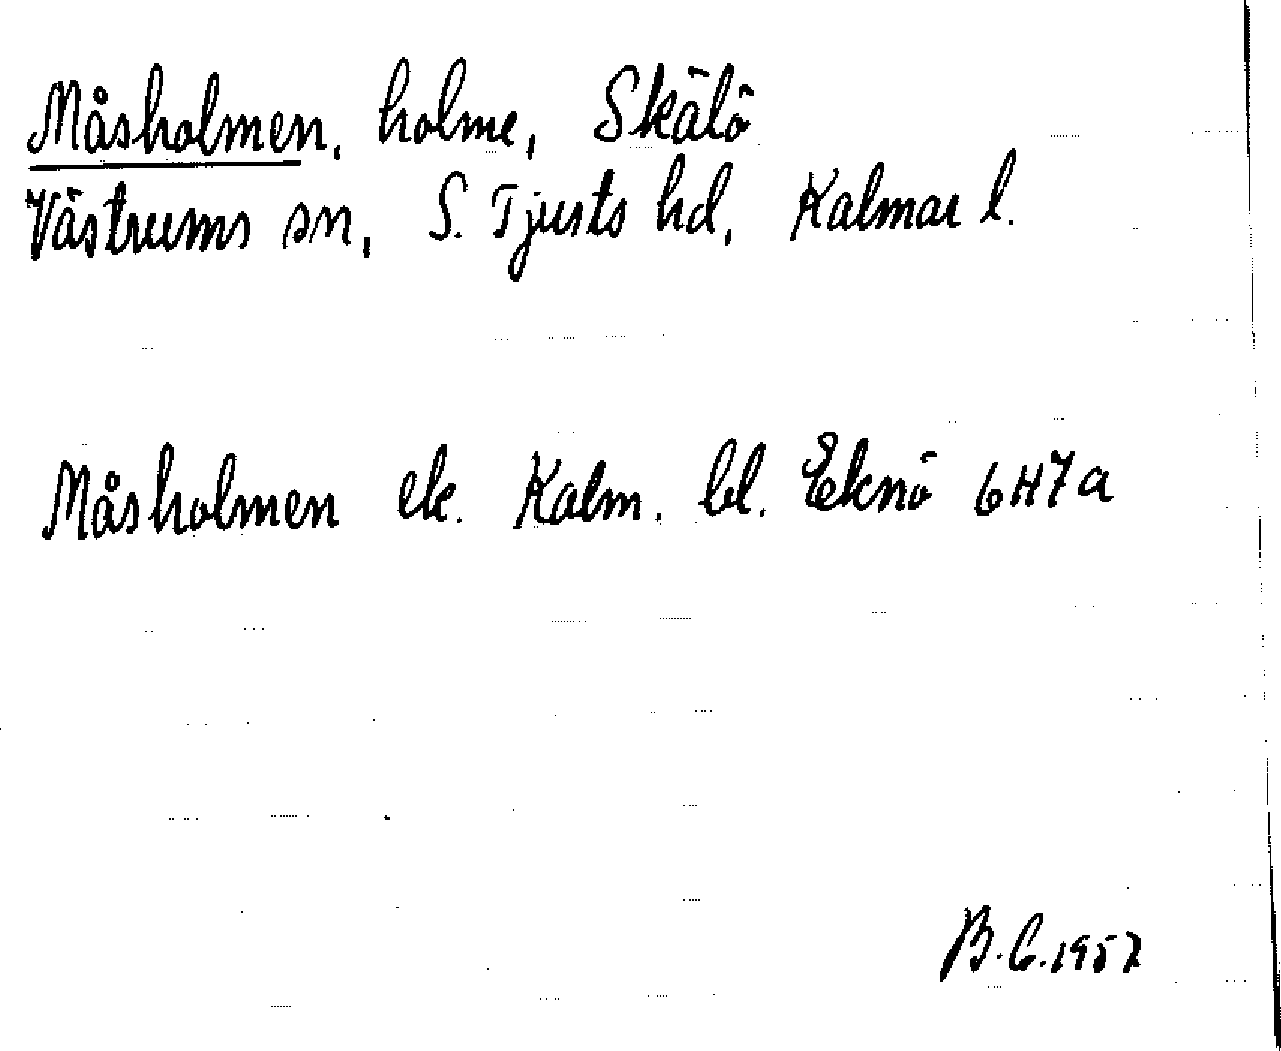 Måsholmen, holme, Skälö
Västrums sn, S. Tjusts hd, Kalmar l.
Måsholmen ek. Kalm. bl. Eknö 6H7a
B.C.1957